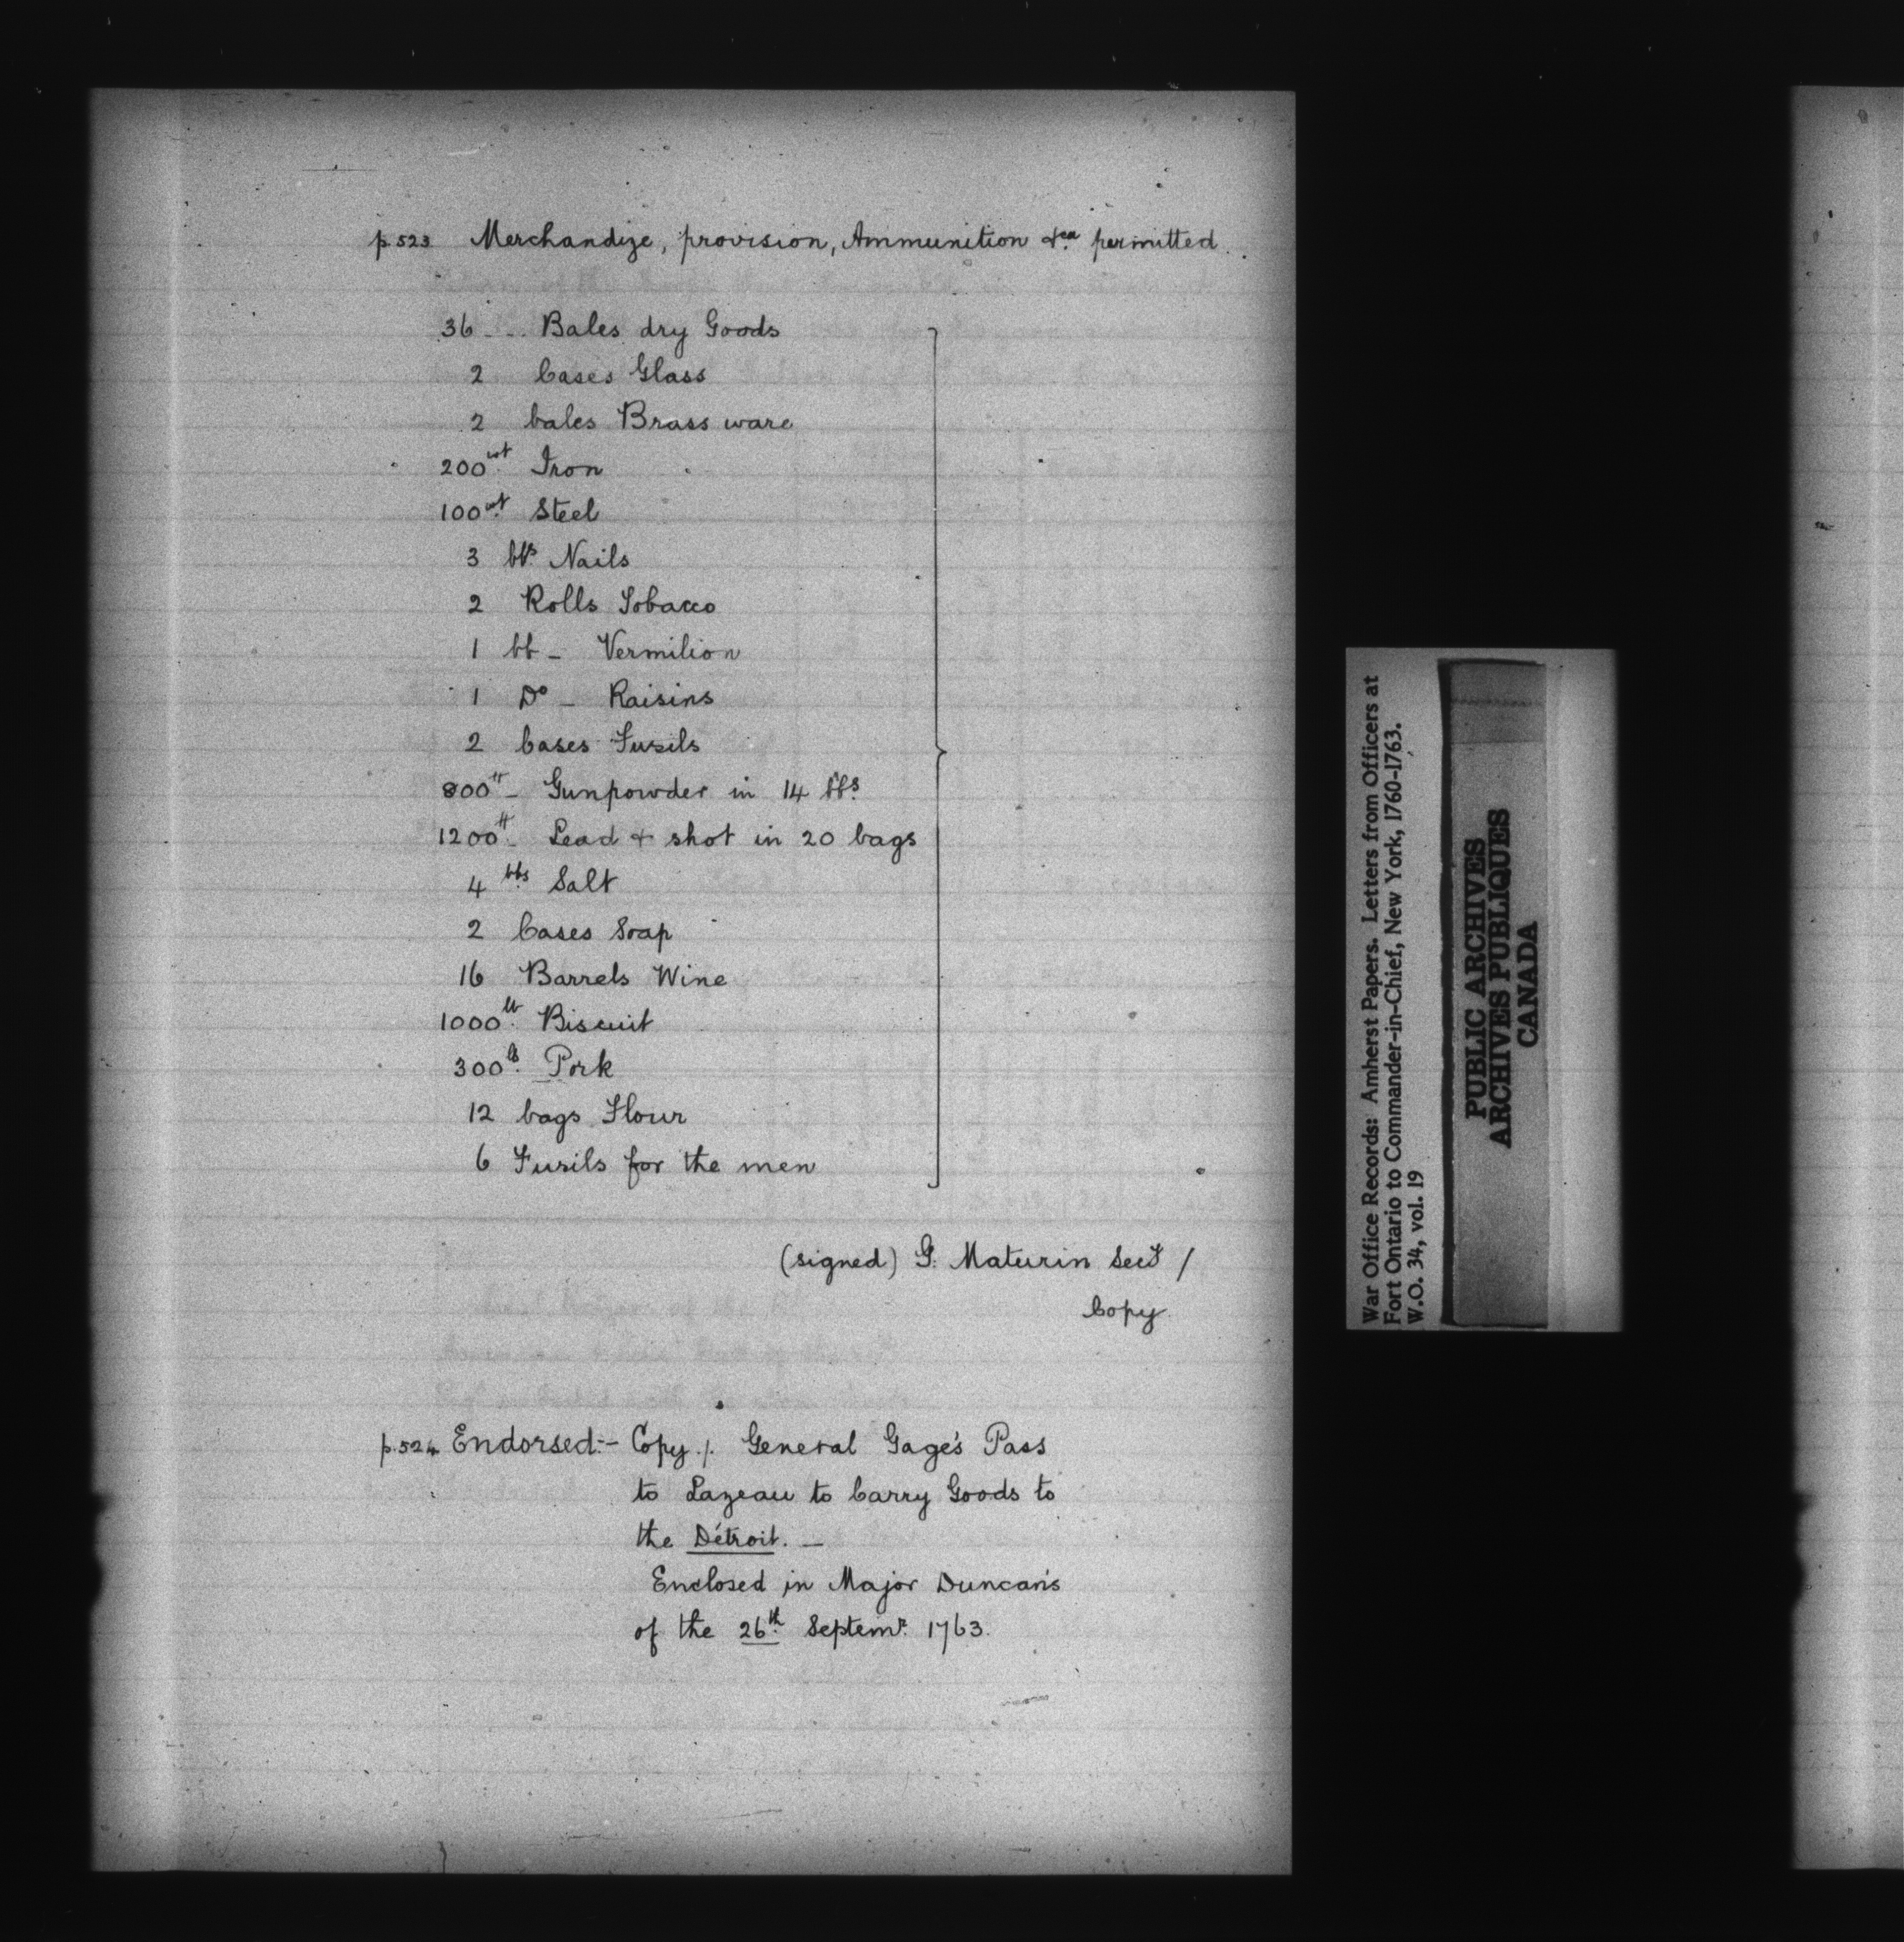 p.523 Merchandize, provision, Ammunition &ca permitted.
36 - .. Bales dry Goods
2 Cases Glass
2 bales Brass ware
200wt Iron
100wt Steel
3 bbs Nails
2 Rolls Tobacco
1 bb - Vermilion
1 Do - Raisins
2 Cases Fusils
800lt - Gunpowder in 14 bbs
1200lt - Lead + shot in 20 bags
4 bbs Salt
2 Cases Soap
16 Barrels Wine
1000lt Biscuit
300lb Pork
12 bags Flour
6 Fusils for the men
(signed) G. Maturin Secy /
Copy.
p.524 Endorsed:- Copy ./. General Gage's Pass
to Lazeau to Carry Goods to
the Détroit. -
Enclosed in Major Duncan's
of the 26th Septemr 1763.
War Office Records: Amherst Papers. Letters from Officers at
Fort Ontario to Commander-in-Chief, New York, 1760-1763.
W.O. 34, vol. 19
PUBLIC ARCHIVES
ARCHIVES PUBLIQUES
CANADA